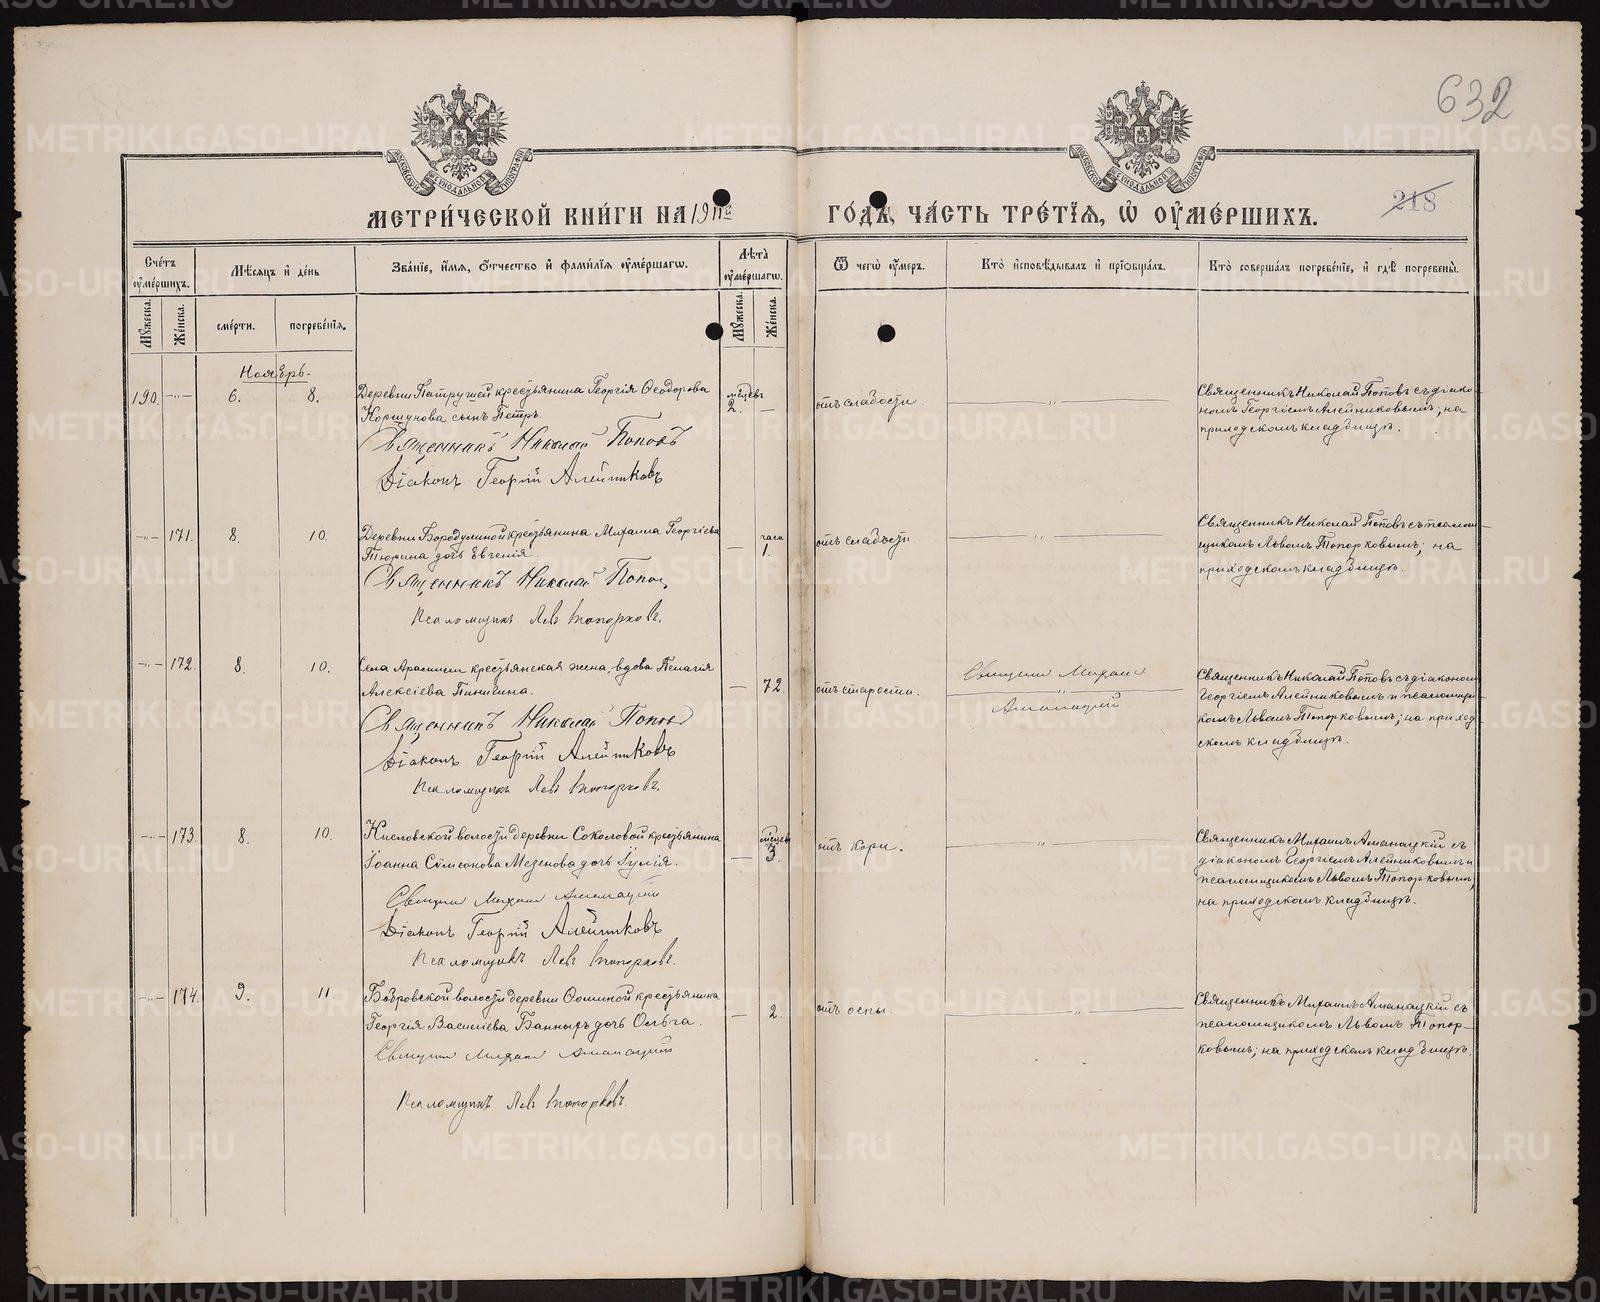 632
218
МЕТРИ́ЧЕСКОЙ КНИ́ГИ НА 1911й ГО́ДЪ, ЧА́СТЬ ТРЕ́ТЇѦ, Ѿ ОУМЕ́РШИХЪ.
Сче́тъ оуме́ршихъ.
Мѣ́сѧцъ и де́нь
Зва́нїе, и́мѧ, о́тчество и фамилїѧ оуме́ршагѡ.
Лѣта̀ оуме́ршагѡ.
Ѿ чегѡ̀ оу́меръ.
Кто̀ исповѣ́дывалъ и прїѡбща́лъ.
Кто̀ соверша́лъ погребе́нїе, и гдѣ̀ погребены̀.
Мꙋ́жеска.
Же́нска.
сме́рти.
погребе́нїѧ.
Мꙋ́жеска.
Же́нска.
Ноябрь.
190. —"— 6. 8.
Деревни Патрушей крестьянина Георгія Ѳеодорова
Коршунова сынъ Петръ.
Священникъ Николай Поповъ
Діаконъ Георгій Алейниковъ
мѣсяцевъ
2. —
отъ слабости.
"
Священникъ Николай Поповъ съ діако-
номъ Георгіемъ Алейниковымъ; на
приходскомъ кладбищѣ.
—"— 171. 8. 10.
Деревни Бородулиной крестьянина Михаила Георгіева
Тюрина дочь Евгенія.
Священникъ Николай Попов
Псаломщикъ Левъ Топорковъ.
часа
— 1.
отъ слабости
"
Священникъ Николай Поповъ съ псалом-
щикомъ Львомъ Топорковымъ; на
приходскомъ кладбищѣ.
—"— 172. 8. 10.
Села Арамили крестьянская жена, вдова Пелагія
Алексіева Пинигина.
Священникъ Николай Попов
Діаконъ Георгій Алейниковъ
Псаломщикъ Левъ Топорковъ.
— 72.
отъ старости.
Священник Михаил
"
Аманацкий
Священникъ Николай Поповъ съ діакономъ
Георгіемъ Алейниковымъ и псаломщи-
комъ Львомъ Топорковымъ; на приход-
скомъ кладбищѣ.
—"— 173. 8. 10.
Кисловской волости деревни Соколовой крестьянина
Іоанна Сѵмеонова Мезенова дочь Іулія.
Священник Михаил Аманацкий
Діаконъ Георгій Алейниковъ
Псаломщикъ Левъ Топорковъ.
мѣсяцев
— 3.
отъ кори.
"
Священникъ Михаилъ Аманацкій съ
діакономъ Георгіемъ Алейниковымъ и
псаломщикомъ Львомъ Топорковымъ;
на приходскомъ кладбищѣ.
—"— 174. 9. 11
Бобровской волости деревни
крестьянина
Георгія Василіева
дочь Ольга.
Священник Михаил Аманацкий
Псаломщикъ Левъ Топорковъ.
— 2.
отъ оспы.
"
Священникъ Михаилъ Аманацкій съ
псаломщикомъ Львомъ Топор-
ковымъ; на приходскомъ кладбищѣ.
METRIKI.GASO-URAL.RU